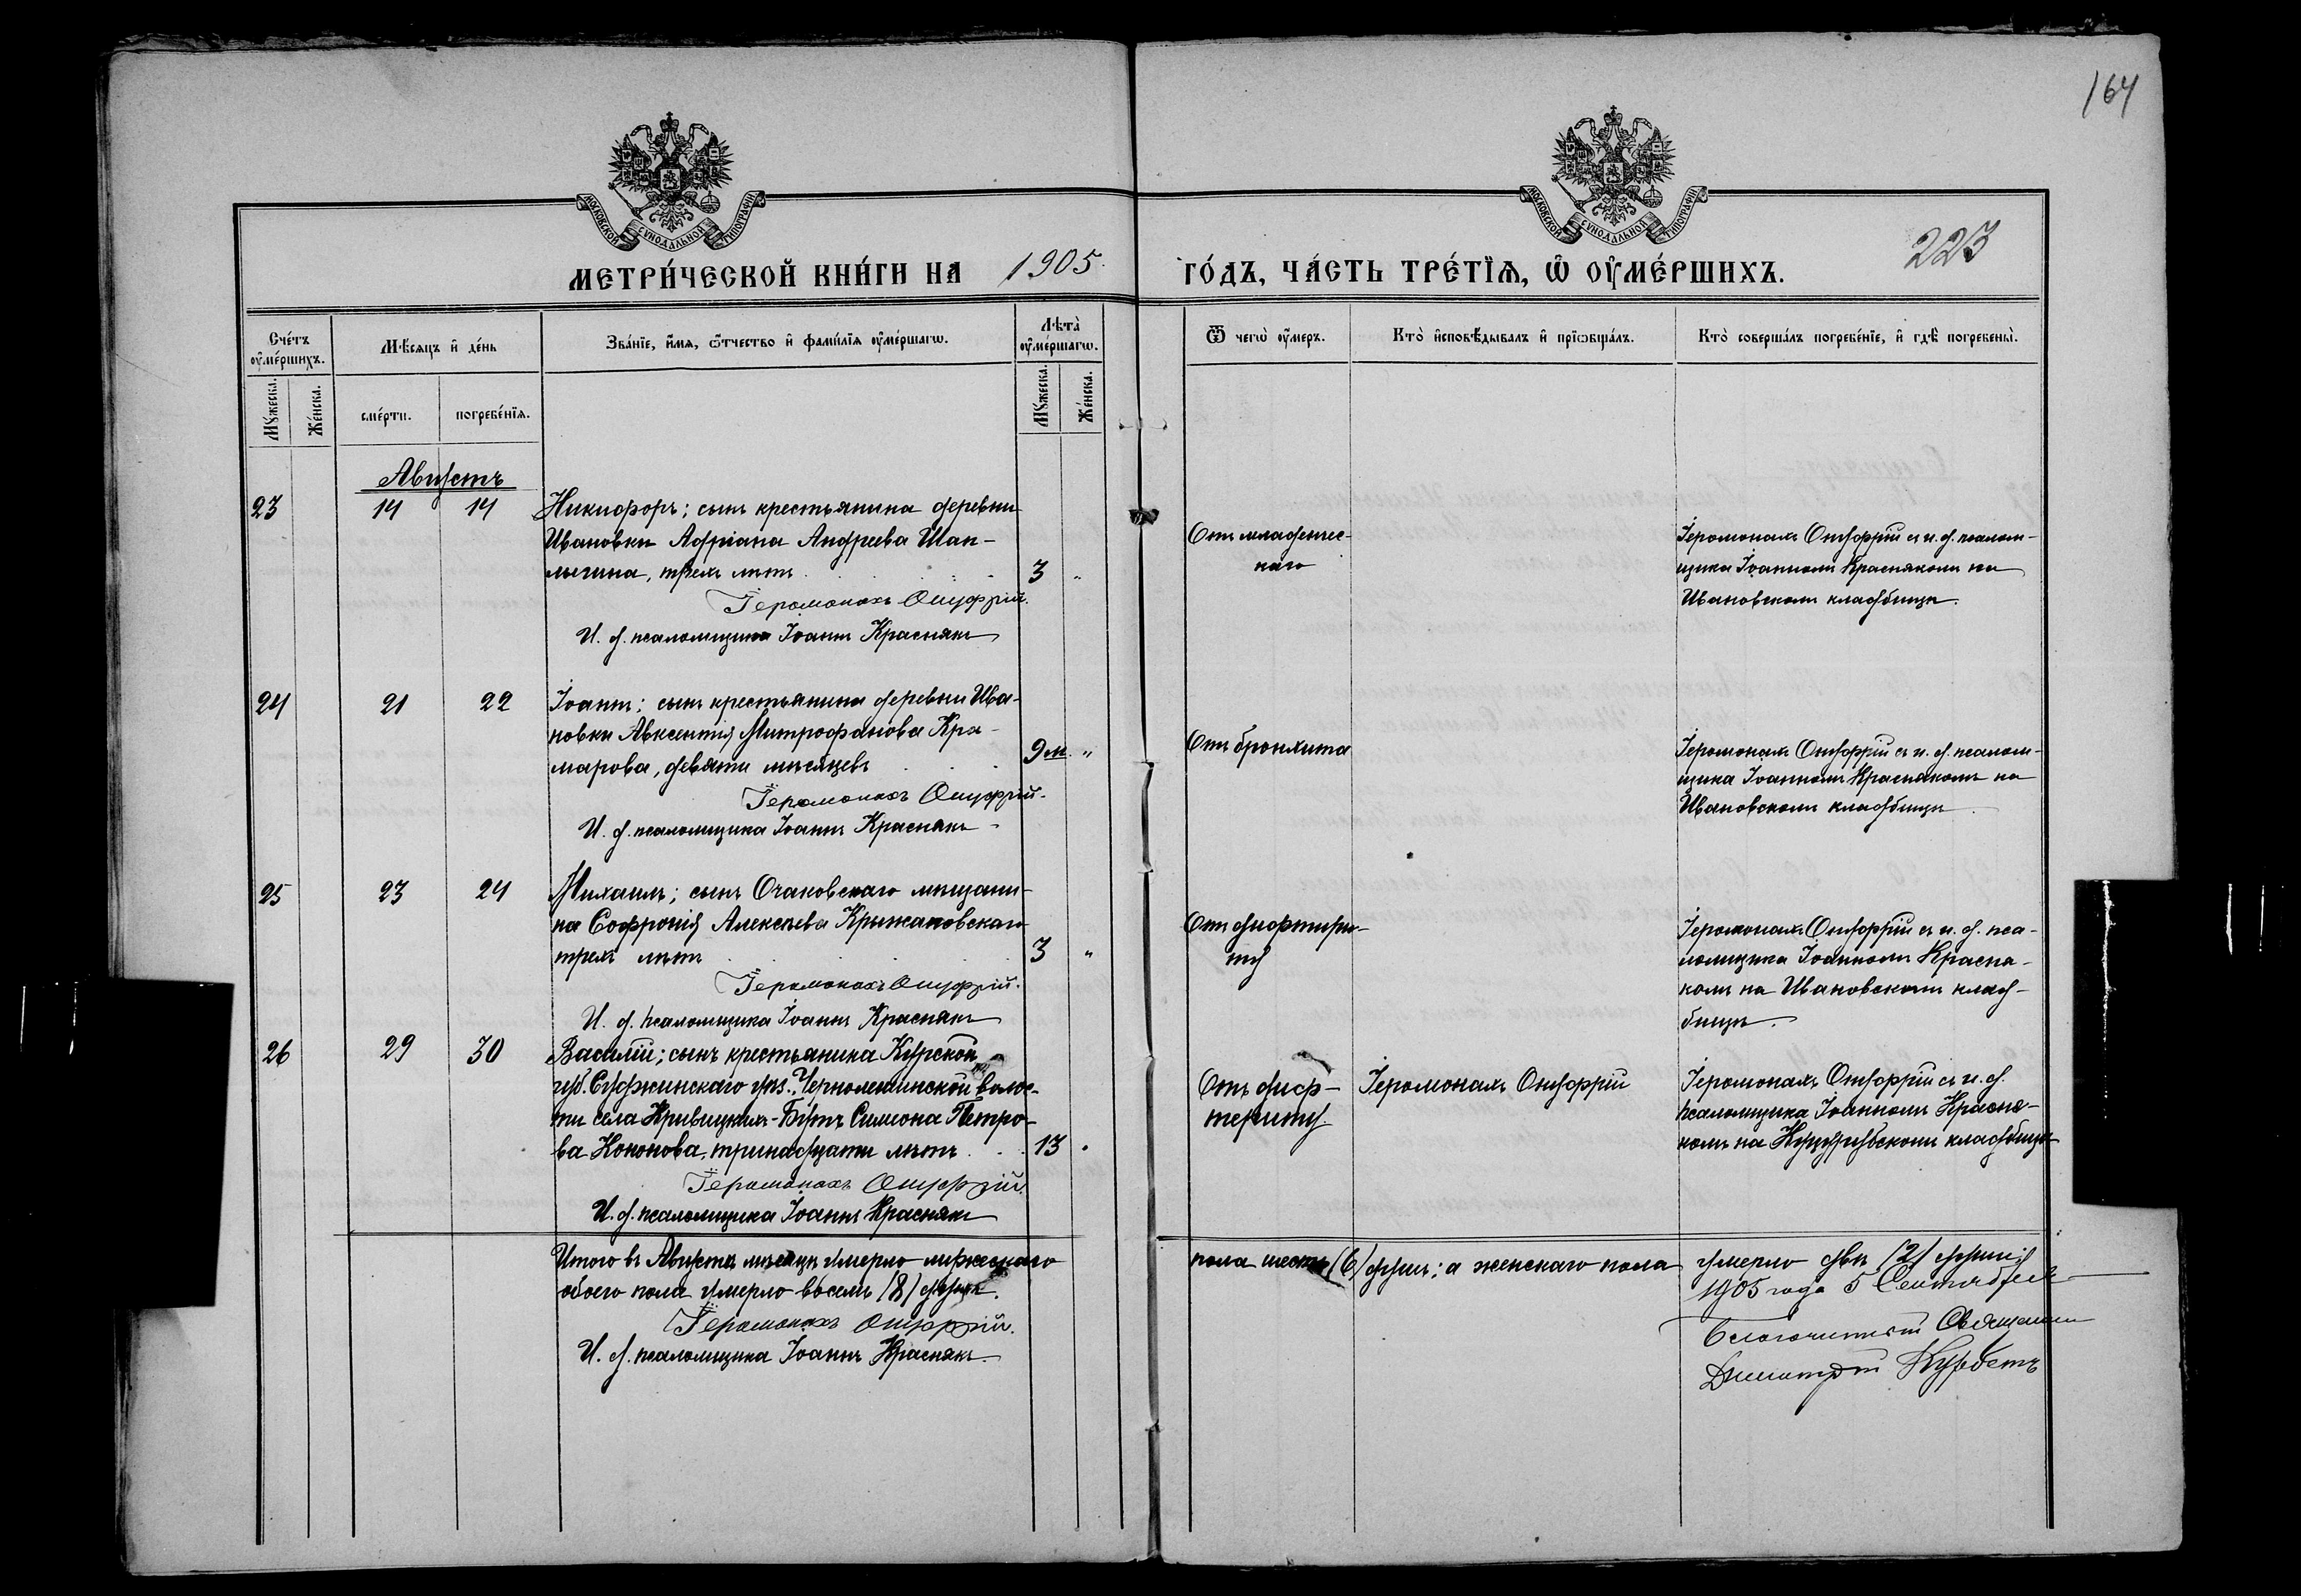 164
МОСКОВСКОЙ СѴНОДАЛЬНОЙ ТИПОГРАФІИ
МОСКОВСКОЙ СѴНОДАЛЬНОЙ ТИПОГРАФІИ
223
МЕТРИ́ЧЕСКОЙ КНИ́ГИ НА 1905 ГО́ДЪ, ЧА́СТЬ ТРЕ́ТІѦ, Ѡ҆ ОУ҆МЕ́РШИХЪ.
Сче́тъ оу҆ме́ршихъ.
Мѣсѧцъ и҆ де́нь
Зва́нїе, и҆́мѧ, ѻ҆́тчество и҆ фами́лїѧ оу҆ме́ршагѡ.
Лѣта̀ оу҆ме́ршагѡ.
Ѿ чегѡ̀ оу҆́меръ.
Кто̀ и҆сповѣ́дывалъ и҆ прїѡбща́лъ.
Кто̀ соверша́лъ погребе́нїе, и҆ гдѣ̀ погребены̀.
Мꙋ́жеска.
Же́нска.
сме́рти.
погребе́нїѧ.
Мꙋ́жеска.
Же́нска.
Августъ
23 14 14 Никифоръ; сынъ крестьянина деревни
Ивановки Адріана Андреева Шап-
лыгина, трехъ лѣтъ . . . 3 "
Іеромонахъ Онуфрій.
И. д. псаломщика Іоаннъ Краснякъ
Отъ младенчес-
каго
Іеромонахъ Онуфрій съ и. д. псалом-
щика Іоанномъ Краснякомъ на
Ивановскомъ кладбищѣ.
24 21 22 Іоаннъ; сынъ крестьянина деревни Ива-
новки Авксентія Митрофанова Кра-
марова, девяти мѣсяцевъ . . 9 м. "
Іеромонахъ Онуфрій.
И. д. псаломщика Іоаннъ Краснякъ
Отъ бронхита
Іеромонахъ Онуфрій съ и. д. псалом-
щика Іоанномъ Краснякомъ на
Ивановскомъ кладбищѣ.
25 23 24 Михаилъ; сынъ Очаковскаго мѣщани-
на Софронія Алексѣева Крыжановскаго
трехъ лѣтъ . . . 3 "
Іеромонахъ Онуфрій.
И. д. псаломщика Іоаннъ Краснякъ
Отъ дифтири-
ту
Іеромонахъ Онуфрій съ и. д. пса-
ломщика Іоанномъ Красня-
комъ на Ивановскомъ клад-
бищѣ.
26 29 30 Василій; сынъ крестьянина Курской
губ. Суджинскаго уѣз., волос-
ти села Петро-
ва Кононова, тринадцати лѣтъ . . 13 .
Іеромонахъ Онуфрій.
И. д. псаломщика Іоаннъ Краснякъ
Отъ диф-
териту.
Іеромонахъ Онуфрій
Іеромонахъ Онуфрій съ и. д.
псаломщика Іоанномъ Красня-
комъ на кладбищѣ
Итого въ Августѣ мѣсяцѣ умерло мужескаго пола шесть (6) душъ; а женскаго пола умерло двѣ (2) души;
обоего пола умерло восемь (8) душъ.
Іеромонахъ Онуфрій.
И. д. псаломщика Іоаннъ Краснякъ.
1905 года 5 Сентября
Благочинный Священникъ
Димитрій Курбетъ